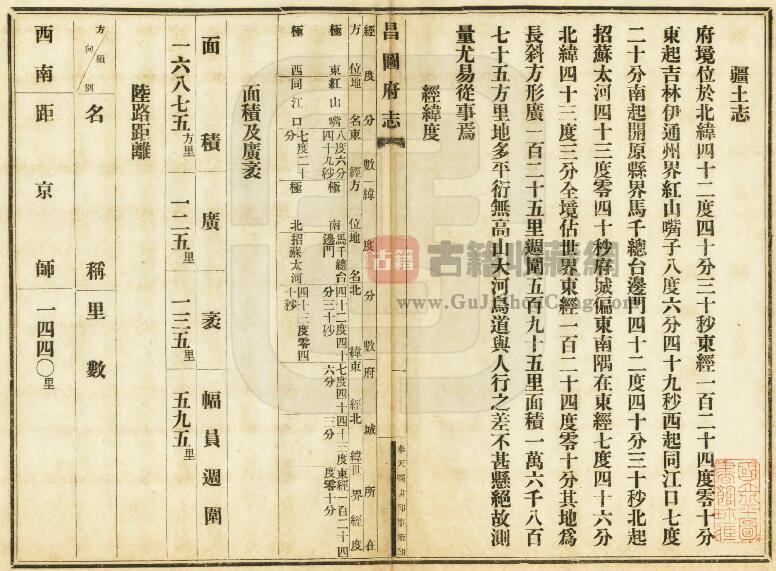 疆土志
府境位於北緯四十二度四十分三十秒東經一百二十四度零十分
東起吉林伊通州界紅山嘴子八度六分四十九秒西起同江口七度
二十分南起開原縣界馬千總台邊門四十二度四十分三十秒北起
招蘇太河四十三度零四十秒府城偏東南隅在東經七度四十六分
北緯四十三度三分全境佔世界東經一百二十四度零十分其地為
長斜方形廣一百二十五里週圍五百九十五里面積一萬六千八百
七十五方里地多平衍無高山大河鳥道與人行之差不甚懸絕故測
量尤易從事焉
經緯度
昌圖府志
奉天圖書印刷所印
經度分數 緯度分數 府城所在
方位 地名 東經 方位 地名 北緯 東經 北緯 世界經度
極東 紅山嘴 八度六分四十九秒 極南 馬千總台邊門 四十二度四十分三十秒 七度四十六分 四十三度三分 東經一百二十四度零十分
極西 同江口 七度二十分 極北 招蘇太河 四十三度零四十秒
面積及廣袤
面積 廣 袤 幅員週圍
一六八七五方里 一二五里 一三五里 五九五里
陸路距離
方向類別 名稱 里數
西南 距京師 一四四〇里
古籍 古籍收藏網
www.GuJiShouCang.com